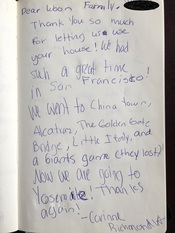 Dear Loan Family,
Thank you so much
for letting us use
your house! We had
such a great time
in San Francisco!
We went to China town,
Alcatraz, The Golden Gate
Bridge, Little Italy, and
a Giants game (they lost)
Now we are going to
Yosemite! Thanks
again!
- Corinne
Richmond, VA